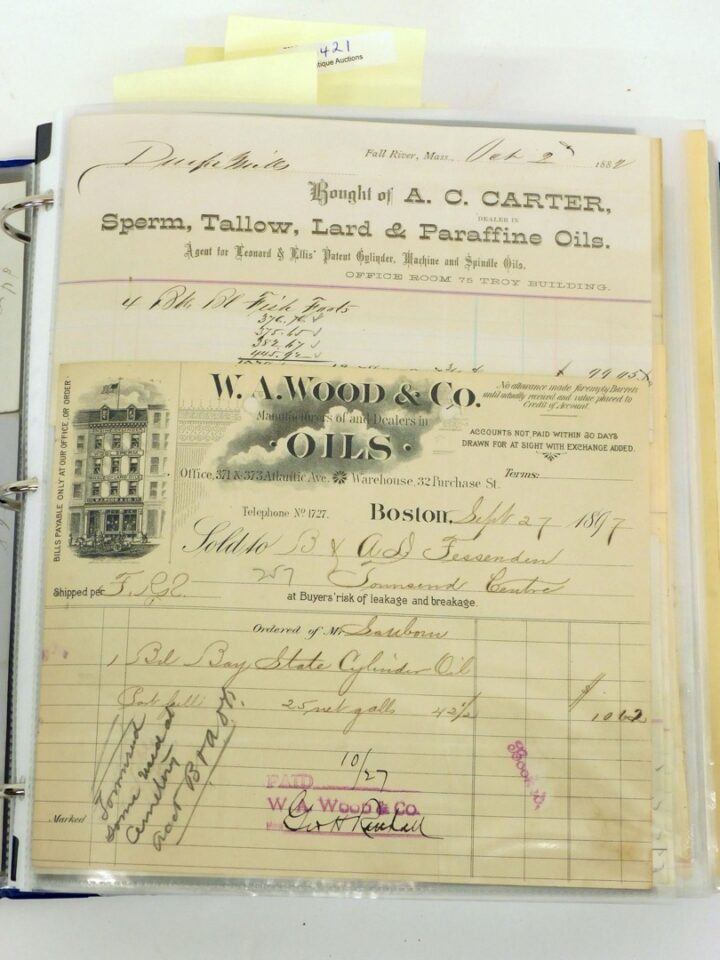 421
tique Auctions
Fall River, Mass., Oct 2 1882
Bought of A. C. CARTER,
DEALER IN
Sperm, Tallow, Lard & Paraffine Oils.
Agent for Leonard & Ellis' Patent Cylinder, Machine and Spindle Oils.
OFFICE ROOM 75 TROY BUILDING.
4 Bls Fish Foots
BILLS PAYABLE ONLY AT OUR OFFICE, OR ORDER
W. A. WOOD & Co.
Manufacturers of and Dealers in
OILS
Office, 371 & 373 Atlantic Ave. Warehouse, 32 Purchase St.
No allowance made for empty Barrels
until actually received and value placed to
Credit of Account.
ACCOUNTS NOT PAID WITHIN 30 DAYS
DRAWN FOR AT SIGHT WITH EXCHANGE ADDED.
Terms:
Telephone No 1727.
Boston, Sept 27 1897
Sold to B & A D Fessenden
257 Townsend Centre
Shipped per F. R.R.
at Buyers' risk of leakage and breakage.
Ordered of Mr Sanborn
1 Bl Bay State Cylinder Oil
25 net galls 42½ 10 62
Townsend
some used at
Cemetery
acct B & A D F.
Marked
10/27
PAID
W. A. WOOD & CO.
Geo H Kendall
Book D.